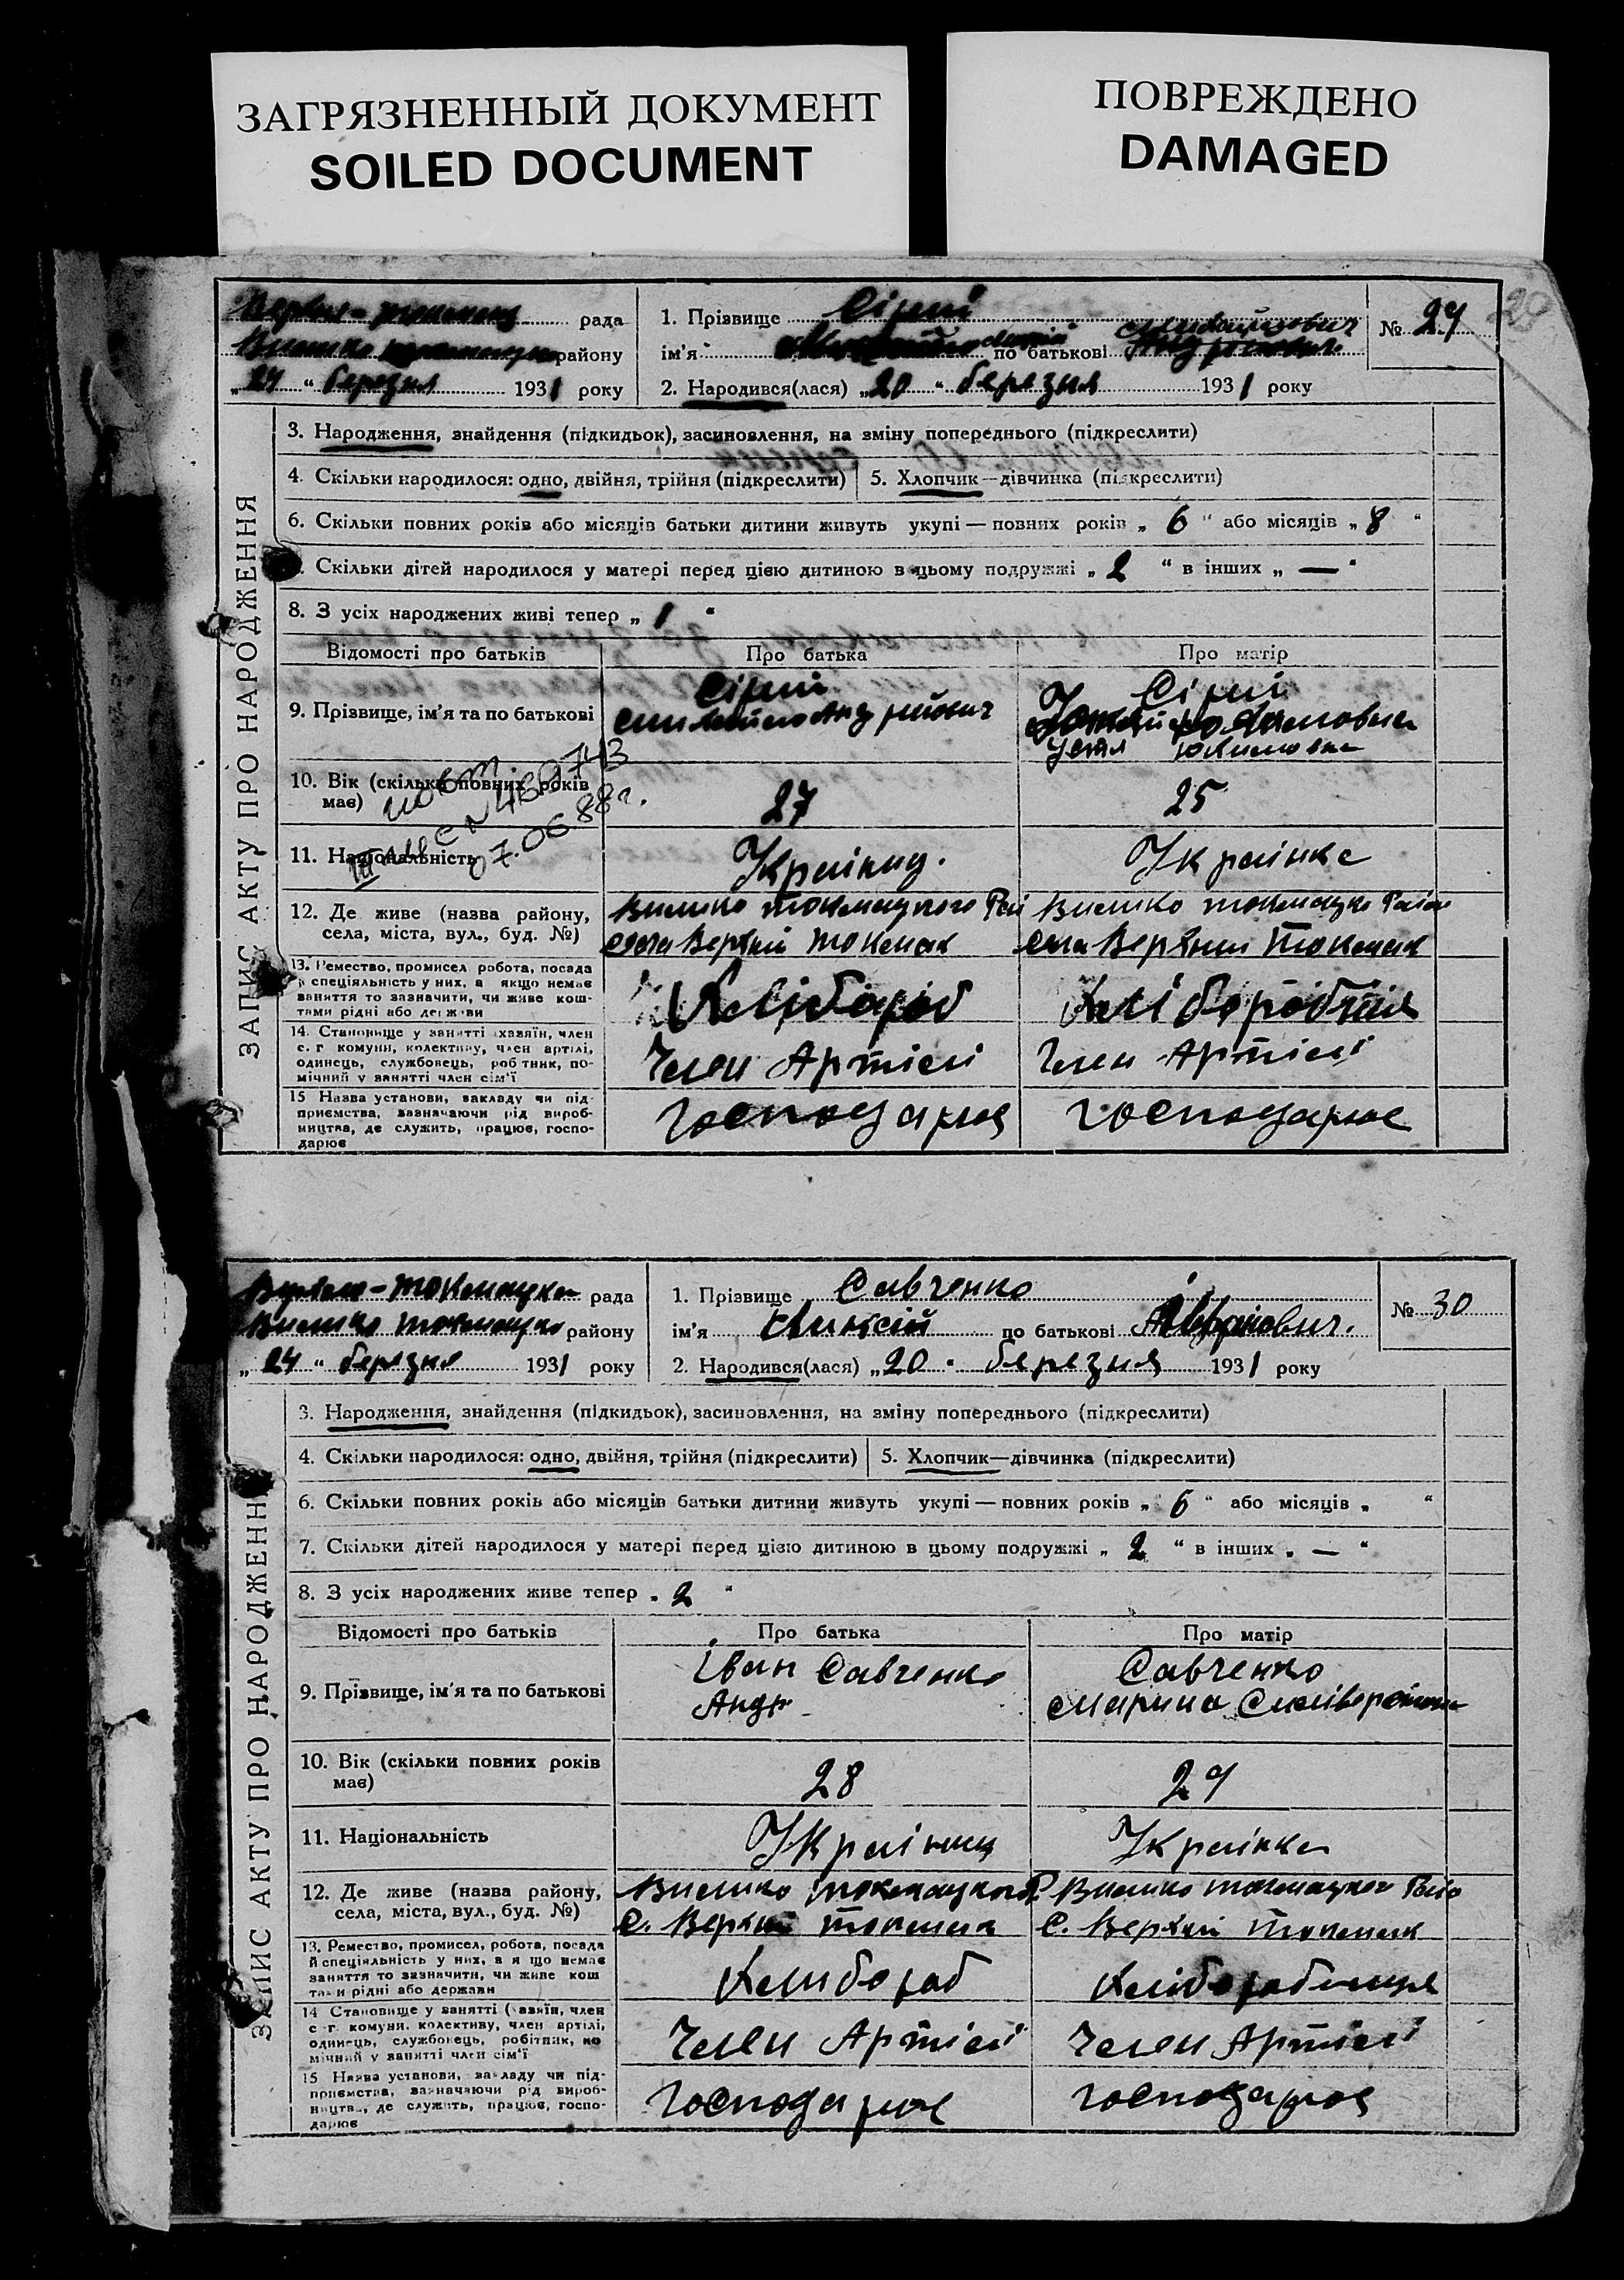 ЗАГРЯЗНЕННЫЙ ДОКУМЕНТ
SOILED DOCUMENT
ПОВРЕЖДЕНО
DAMAGED
рада
району
„24 “ березня 1931 року
1. Прізвище Сірий
ім'я по батькові
2. Народився(лася) „20 “ березня 1931 року
№ 29
ЗАПИС АКТУ ПРО НАРОДЖЕННЯ
3. Народження, знайдення (підкидьок), засиновлення, на зміну попереднього (підкреслити)
4. Скільки народилося: одно, двійня, трійня (підкреслити)
5. Хлопчик—дівчинка (підкреслити)
6. Скільки повних років або місяців батьки дитини живуть укупі — повних років „ 6 “ або місяців „ 8 “
Скільки дітей народилося у матері перед цією дитиною в цьому подружжі „ 2 “ в інших „ — “
8. З усіх народжених живі тепер „ 1 “
Відомості про батьків
Про батька
Про матір
9. Прізвище, ім'я та по батькові
Сірий
Андрийович
Сірий
10. Вік (скільки повних років має)
27
25
07.06.88г.
11. Національність
Українец.
Українка
12. Де живе (назва району, села, міста, вул., буд. №)
села Верхній Токмак
села Верхний Токмак
13. Ремество, промисел робота, посада
й спеціяльність у них, а якщо немає
заняття то зазначити, чи живе кош-
тами рідні або держави
Хлібороб
14. Становище у занятті хазяїн, член
с. г комуни, колективу, член артілі,
одинець, службовець, робітник, по-
мічний у занятті член сім'ї
Член Артілі
Член Артілі
15 Назва установи, закладу чи під-
приємства, зазначаючи рід вироб-
ництва, де служить, працює, госпо-
дарює
Господарює
Господарює
Верхно-Токмацка рада
району
„ 24 “ березня 1931 року
1. Прізвище Савченко
ім'я по батькові
2. Народився(лася) „20 “ березня 1931 року
№ 30
ЗАПИС АКТУ ПРО НАРОДЖЕННЯ
3. Народження, знайдення (підкидьок), засиновлення, на зміну попереднього (підкреслити)
4. Скільки народилося: одно, двійня, трійня (підкреслити)
5. Хлопчик—дівчинка (підкреслити)
6. Скільки повних років або місяців батьки дитини живуть укупі — повних років „ 6 “ або місяців „ “
7. Скільки дітей народилося у матері перед цією дитиною в цьому подружжі „ 2 “ в інших „ — “
8. З усіх народжених живе тепер „ 2 “
Відомості про батьків
Про батька
Про матір
9. Прізвище, ім'я та по батькові
Іван Савченко
Андр
Савченко
Марина
10. Вік (скільки повних років має)
28
29
11. Національність
Українец
Українка
12. Де живе (назва району, села, міста, вул., буд. №)
с. Верхній Токмак
с. Верхній Токмак
13. Ремество, промисел, робота, посада
й спеціяльність у них, а якщо немає
заняття то зазначити, чи живе кош
тами рідні або держави
14 Становище у занятті (хазяїн, член
с-г. комуни, колективу, член артілі,
одинець, службовець, робітник, по
мічний у занятті член сім'ї
Член Артілі
Член Артілі
15 Назва установи, закладу чи під-
приємства, зазначаючи рід вироб-
ництва, де служить, працює, госпо-
дарює
Господарює
Господарює